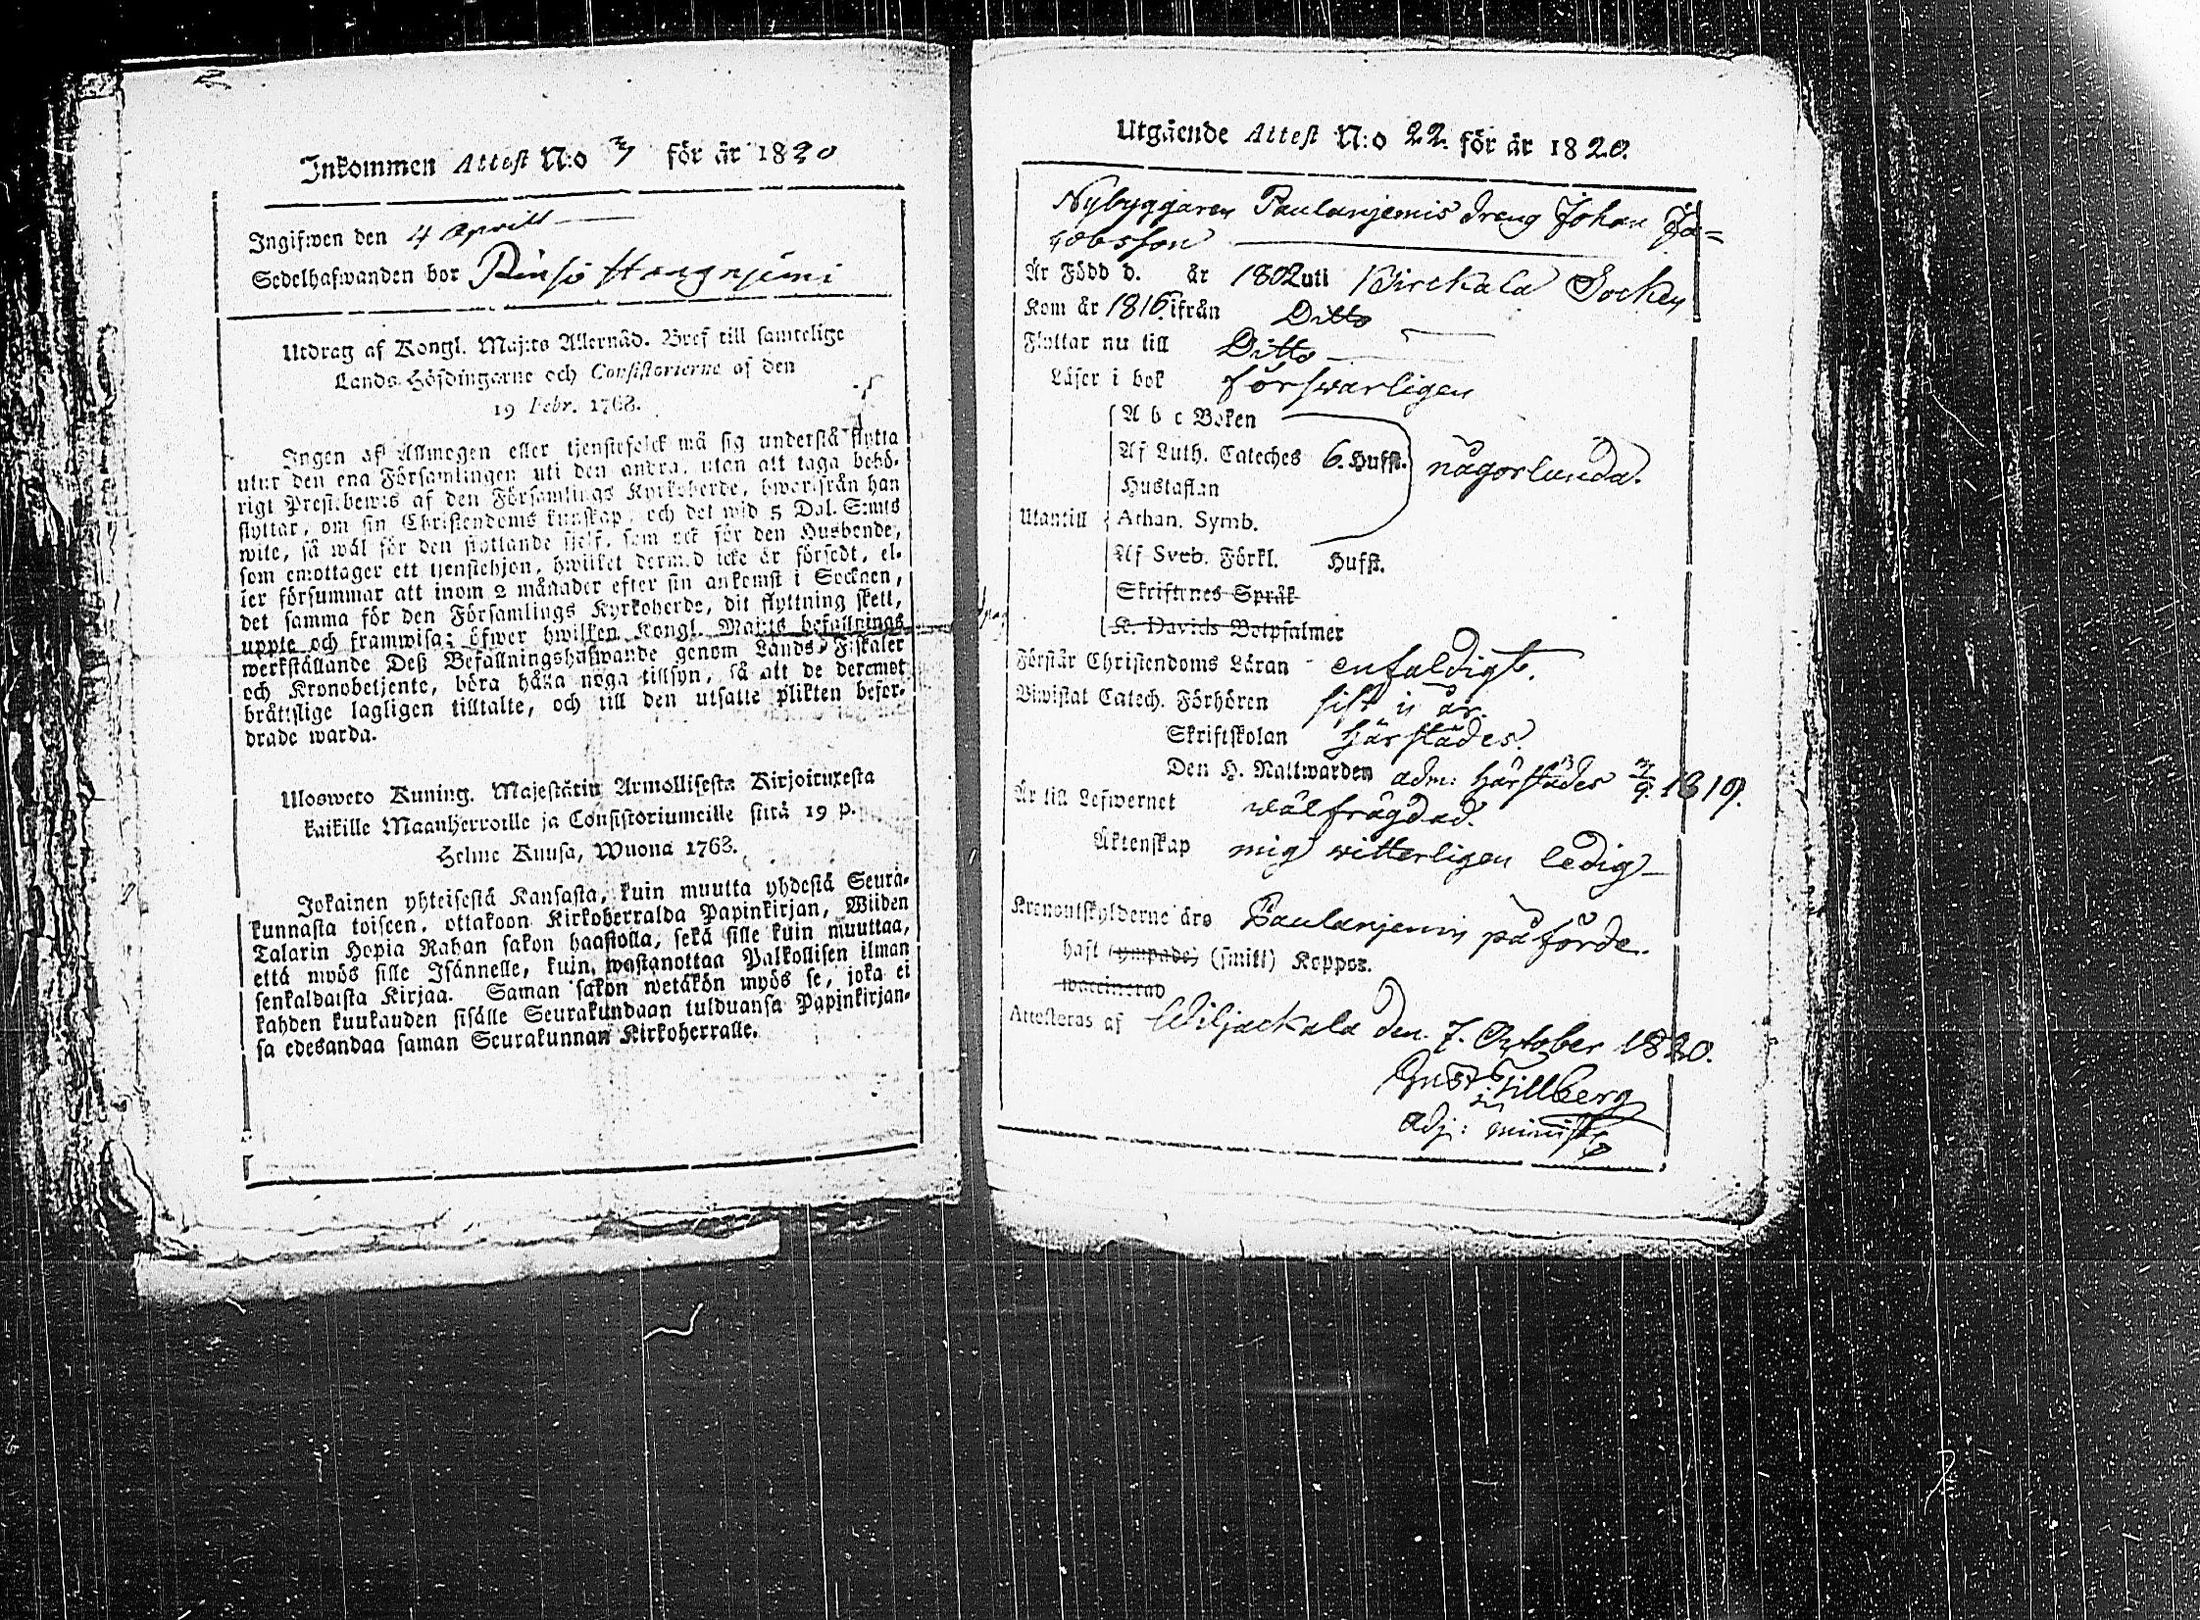 Inkommen Attest N:o 7 för år 1820
Ingifwen den 4 Aprill
Sedelhafwanden bor
Utdrag af Kongl. Maj:ts Allernåd. Bref till samtelige
Lands-Höfdingarne och Consistorierne af den
19 Febr. 1768.
Ingen af Allmogen eller tjenstefolck må sig understå flytta
utur den ena Församlingen uti den andra, utan att taga behö-
rigt Prestbewis af den Församlings Kyrkoherde, hwarifrån han
flyttar, om sin Christendoms kunskap, och det wid 5 Dal. S:mts
wite, så wäl för den flyttande sjelf, som ock för den Husbonde,
som emottager ett tjenstehjon, hwilket dermed icke är försedt, el-
ler försummar att inom 2 månader efter sin ankomst i Socknen,
det samma för den Församlings Kyrkoherde, dit flyttning skett,
uppte och framwisa; öfwer hwilken Kongl. Maj:ts befallnings
werkställande Deß Befallningshafwande genom Lands-Fiskaler
och Kronobetjente, böra hålla noga tillsyn, så att de deremot
bråttslige lagligen tilltalte, och till den utsatte plikten befor-
drade warda.
Ulosweto Kuning. Majestätin Armollisesta Kirjoituxesta
kaikille Maanherroille ja Consistoriumeille siitä 19 p.
Helme Kuusa, Wuona 1768.
Jokainen yhteisestä Kansasta, kuin muutta yhdestä Seura-
kunnasta toiseen, ottakoon Kirkoherralda Papinkirjan, Wiiden
Talarin Hopia Rahan sakon haastolla, sekä sille kuin muuttaa,
että myös sille Isännelle, kuin wastanottaa Palkollisen ilman
senkaldaista Kirjaa. Saman sakon wetäkön myös se, joka ei
kahden kuukauden sisälle Seurakundaan tulduansa Papinkirjan-
sa edesandaa saman Seurakunnan Kirkoherralle.
Utgående Attest N:o 22. för år 1820.
Nybyggaren Paulanjemis dreng Johan Ja=
cobsson
Är Född d. år 1802 uti Birckala Socken
Kom år 1816 ifrån Ditto
Flyttar nu till Ditto
Läser i bok förswarligen
A b c Boken
Af Luth. Cateches 6. Hufst. någorlunda.
Hustaflan
Utantill Athan. Symb.
Af Sveb. Förkl. Hufst.
Skriftenes Språk
K. Davids Botpsalmer
Förstår Christendoms Läran enfaldigt.
Biwistat Catech. Förhören sist i år.
Skriftskolan härstädes.
Den H. Nattwarden adm: härstädes 1819.
Är till Lefwernet wälfrägdad.
Äktenskap mig witterligen ledig
Kronoutskylderne äro Paulanjemis påförde.
haft (ympade) (smitt) Koppor.
waccinerad
Attesteras af Wiljackala den 7. October 1820.
Gust: Tillberg
Adj: minist